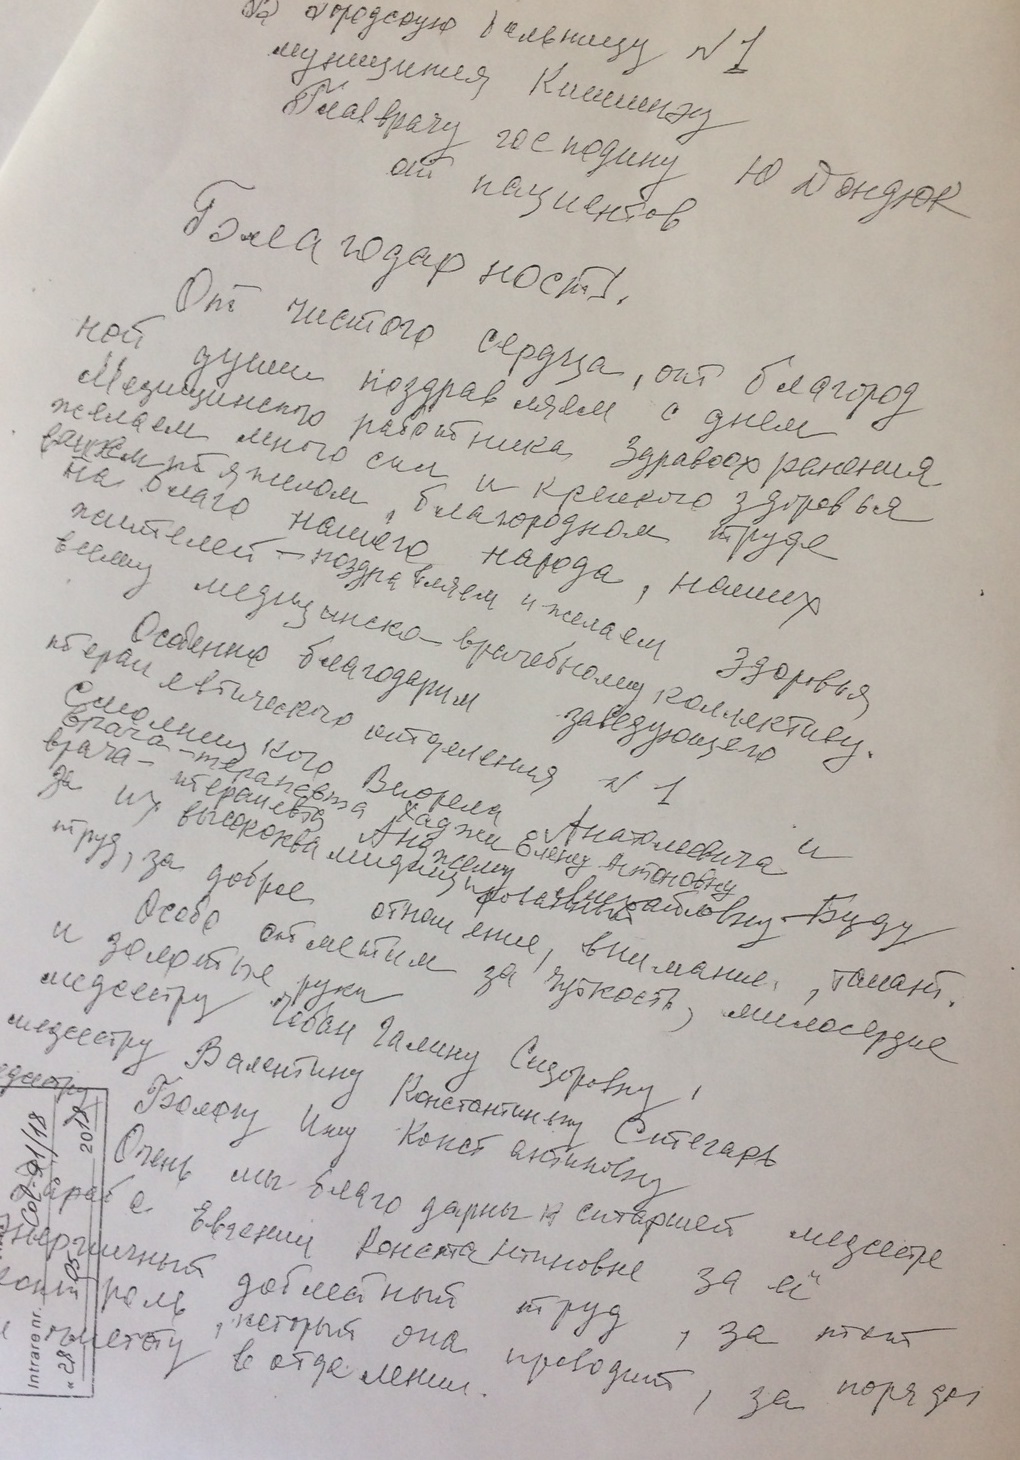 В городскую больницу №1
муниципия Кишинэу
Главврачу господину Ю Дондюк
от пациентов
Благодарность!
От чистого сердца, от благород
ной души поздравляем с днем
Медицинского работника Здравоохранения
желаем много сил и крепкого здоровья
тяжелом, благородном труде
на благо нашего народа, наших
жителей – поздравляем и желаем здоровья
всему медицинско-врачебному коллективу.
Особенно благодарим заведующего
терапевтического отделения №1
Виорела Анатолевича и
врача-терапевта Хаджи Елену Антоновну
врача-терапевта Анджелу Буду
за их высококвалифицированный
труд, за доброе отношение, внимание, талант.
Особо отметим за чуткость, милосердие
и золотые руки
медсестру Чебан Галину Сидоровну,
медсестру Валентину Константиновну Ситегарь
медсестру Болфу Ину Константиновну
Очень мы благодарны к старшей медсестре
Евгении Константиновне за её
энергичный доблестный труд, за тот
контроль, который она проводит, за порядок
и чистоту в отделении.
Intrare nr.
"28" 05 2018